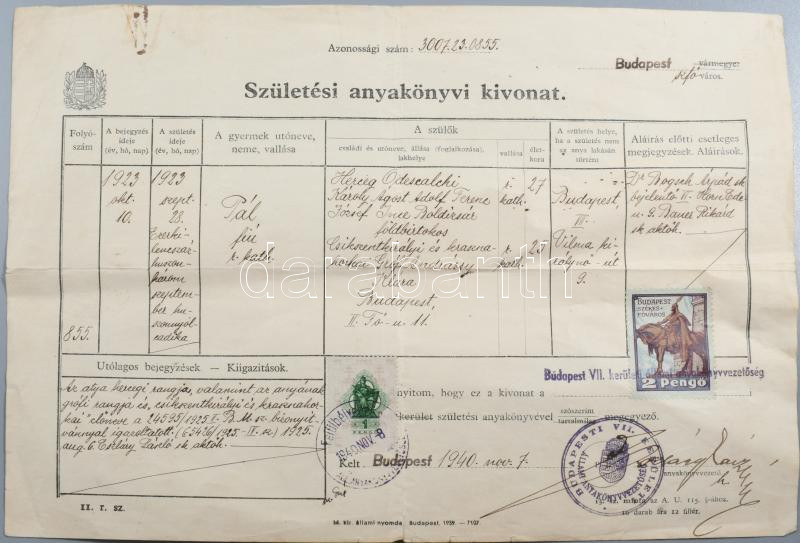 Azonossági szám: 3007.23.0855.
Budapest vármegye
város.
Születési anyakönyvi kivonat.
Folyó-
szám
A bejegyzés
ideje
(év, hó, nap)
A születés
ideje
(év, hó, nap)
A gyermek utóneve,
neme, vallása
A szülők
családi és utóneve, állása (foglalkozása),
lakhelye
vallása
élet-
kora
A születés helye,
ha a születés nem
az anya lakásán
történt
Aláírás előtti esetleges
megjegyzések. Aláírások.
855.
1923
okt.
10.
1923
szept.
28.
Ezerki-
lencszáz-
huszon-
három
szeptem-
ber hu-
szonnyol-
cadika
Pál
fiú
r. kath.
Herceg Odescalchi
Károly Ágost Adolf Ferenc
József Ince Boldizsár
földbirtokos
r.
kath.
27
Csikszentkirályi és kraszna-
horkai Gróf Andrássy
Klára
Budapest,
II. Fő-u 11.
r.
kath.
25
Budapest,
VII.
Vilma ki-
rálynő-út
9.
Dr Bogsch Árpád sk
bejelentő II. Horn Ede
u 9. Bauer Rikárd
sk aktók.
Utólagos bejegyzések — Kiigazítások.
Az atya hercegi rangja, valamint az anyának
grófi rangja és „csikszentkirályi és krasznahor-
kai" előneve a 24595/1925 I. B. M. sz. bizonyít-
vánnyal igazoltatott. 1925.
aug. 6. László sk aktók.
BUDAPEST
SZÉKES-
FŐVÁROS
2 Pengő
1
PENGŐ
1940 NOV 8
Budapest VII. kerületi állami anyakönyvvezetőség
nyitom, hogy ez a kivonat a
kerület születési anyakönyvével szószerint
tartalmilag megegyező.
Kelt Budapest 1940. nov. 7.
BUDAPESTI VII. KERÜLET
ÁLLAMI ANYAKÖNYVVEZETŐSÉG
anyakönyvvezető.
II. r. sz.
M. kir. állami nyomda. Budapest, 1939. — 7107
15. sz. minta az A. U. 115. §-ához.
10 darab ára 12 fillér.
darabanth.com